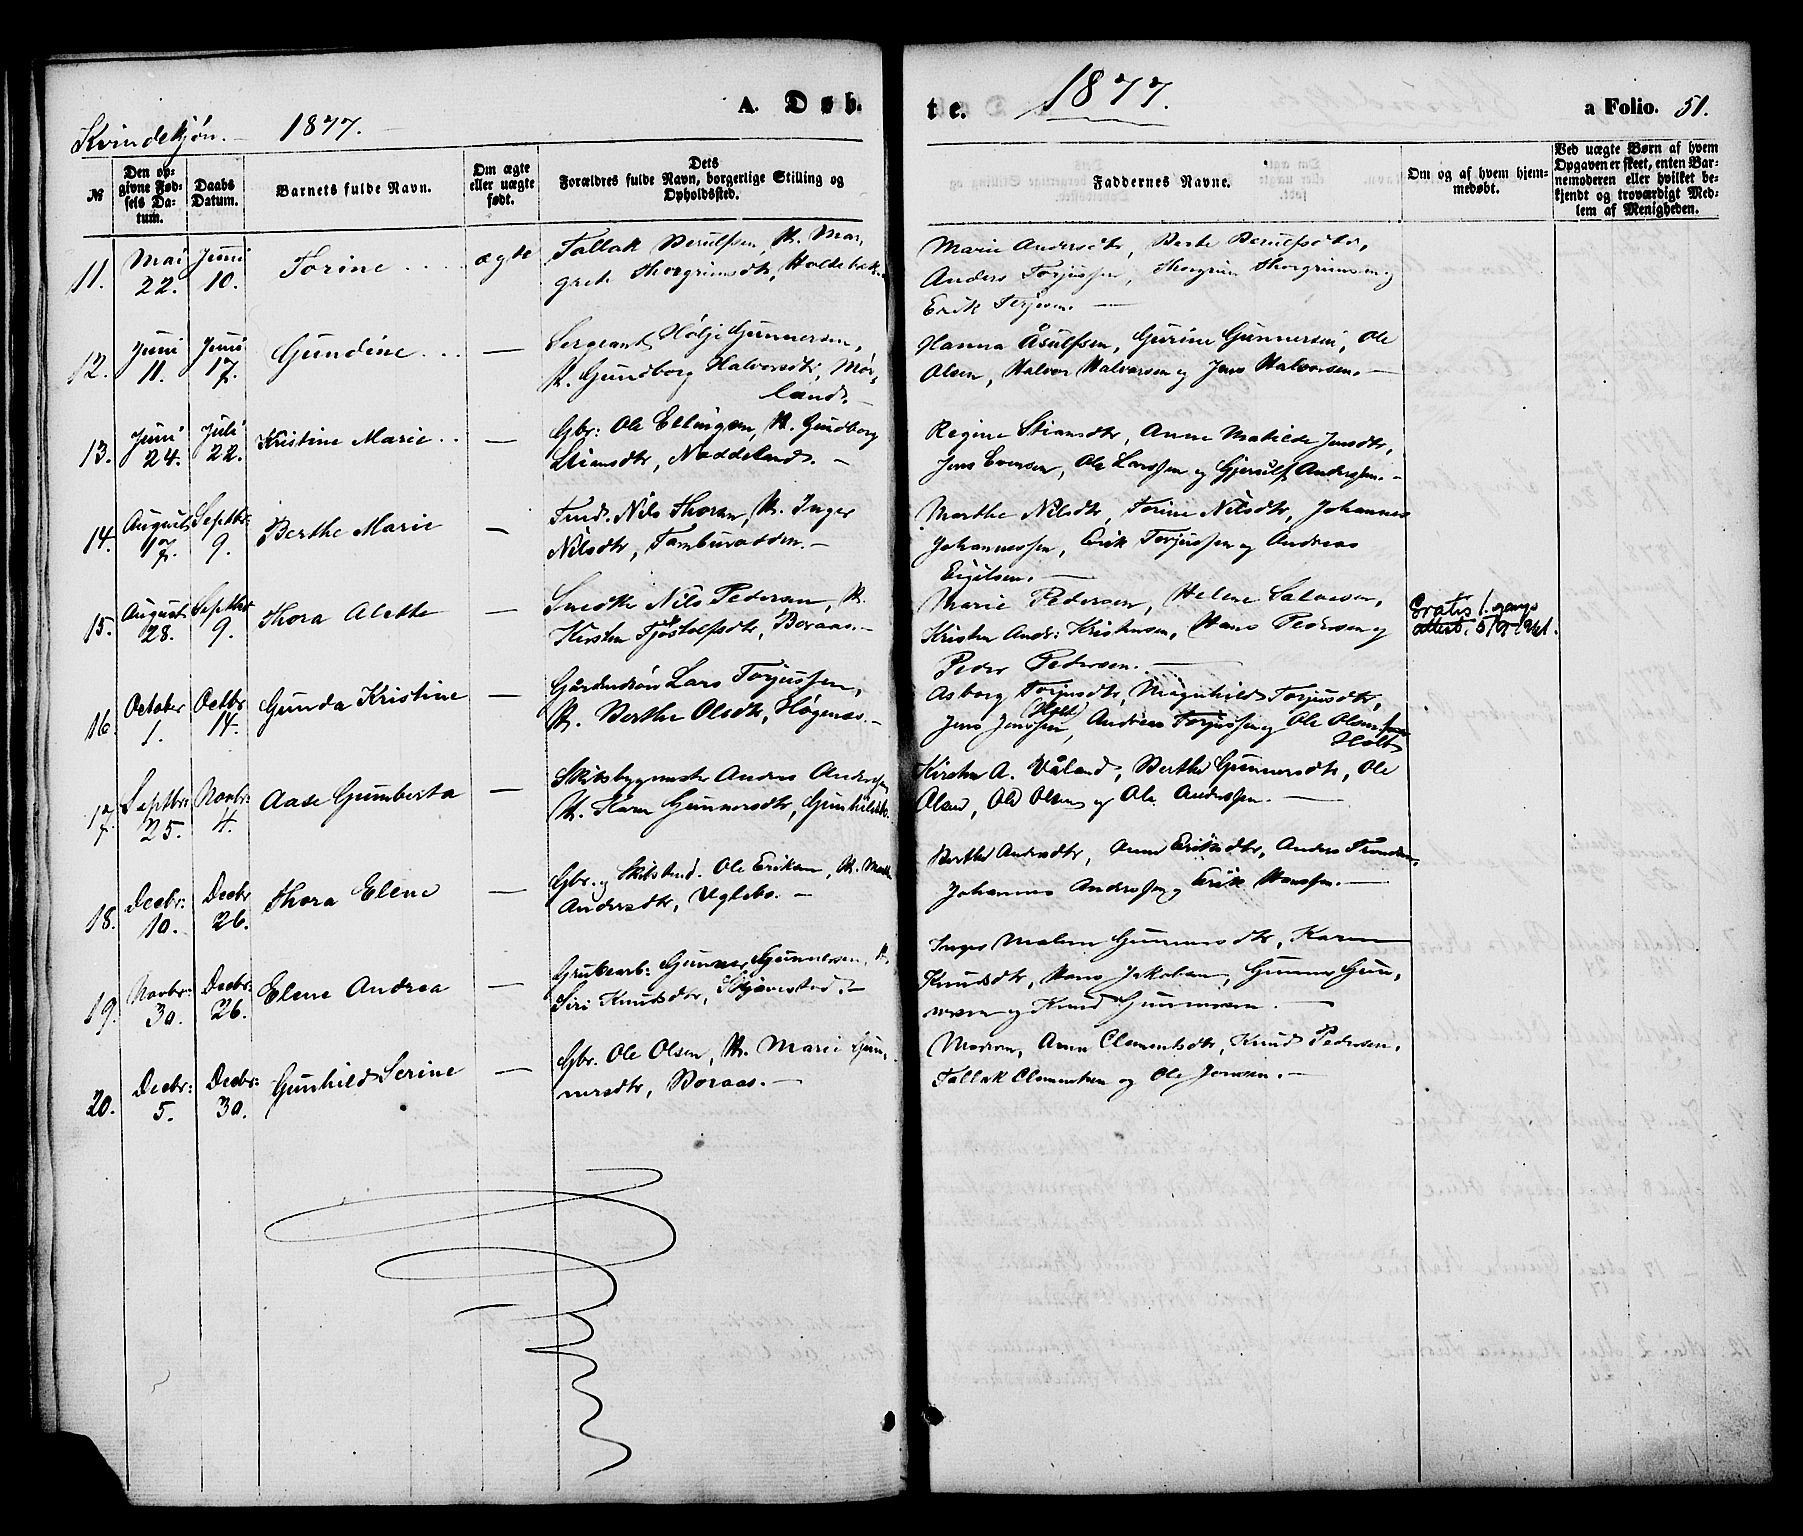 Kvindekjøn. 1877. A. Døb. te. 1877. a Folio. 51.
№ Den opgivne Fødsels Datum. Daabs Datum. Barnets fulde Navn. Om ægte eller uægte født. Dets Forældres fulde Navn, borgerlige Stilling og Opholdssted. Faddernes Navne. Om og af hvem hjemmedøbt. Ved uægte Børn af hvem Opgaven er skeet, enten Barnemoderen eller hvilket bekjendt og troværdigt Medlem af Menigheden.
11. Mai 22. Juni 10. Torine ægte
Tallak Berulfsen, K. Mar,
grete Thorgrimsdtr, Holdebæk
Marie Andersdtr, Berte Berulfsdtr,
Anders Torjussen, Thorgrim Thorgrimsen og
Erik Terjesen. —
12. Juni 11. Juni 17. Gundine —
Sergeant Hølje Gunnersen,
K. Gundborg Halvorsdtr, Mør,
land. —
Hanna Åsulfsen, Gurine Gunnersen, Ole
Olsen, Halvor Halvorsen og Jens Halvorsen. —
13. Juni 24. Juli 22. Kristine Marie —
Gbr: Ole Ellingsen, K. Gundborg
Stiansdtr, Naddeland. —
Regine Stiansdtr, Anne Matilde Jensdtr,
Jens Evensen, Ole Larssen og Gjerulf Anderssen. —
14. August 17. Septbr: 9. Berthe Marie —
Nils Thoran, K. Inger
Nilsdtr, Tamburodden. —
Marthe Nilsdtr, Torine Nilsdtr, Johannes
Johannessen, Erik Torjussen og Andreas
Eigilsen. —
15. August 28. Septbr 9. Thora Alette —
Smedk Nils Pedersen, K.
Kirsten Tjøstolfsdtr, Boraas. —
Marie Pedersen, Helene Salvesen,
Kristen Andr: Kristensen, Hans Pedersen og
Peder Pedersen. —
Gratis 1. gangs
attest. 5/9-1941.
16. October 1. Octbr 14. Gunda Kristine —
Lars Torjussen,
K. Berthe Olsdtr, Høgenes. —
Asborg Torjusdtr, Magnhild Torjusdtr,
Jens Jenssen (Holt), Andreas Torjussen og Ole Olsen
Holt
17. Septbr: 25. Novbr: 4. Aase Gumberta —
Skibsbygmester Anders Anderssen
K. Karen Gunnersdtr,
Kirsten A. Våland, Berthe Gunnersdtr, Ole
Olsen, Ole Olsen og Ole Anderssen. —
18. Decbr: 10. Decbr 26. Thora Elene —
Gbr. og Skibstmd. Ole Eriksen, K.
Andersdtr, Uglebo. —
Berthe Andersdtr, Anne Eriksdtr, Anders
Johannes Anderssen og Erik Hanssen. —
19. Novbr: 30. Decbr: 26. Elene Andrea —
Grubearb: Gunner Gunnersen, K.
Siri Knudsdtr,
Inger Malene Gunnersdtr, Karen
Knudsdtr, Hans Jakobsen, Gunner Gun,
nersen og Knud Gunnersen. —
20. Decbr: 5. Decbr: 30. Gunhild Serine —
Gbr. Ole Olsen, K. Marie Gun,
nersdtr, Boraas. —
Moderen, Anna Clementsdtr, Knud Pedersen,
Tallak Clementsen og Ole Jensen. —